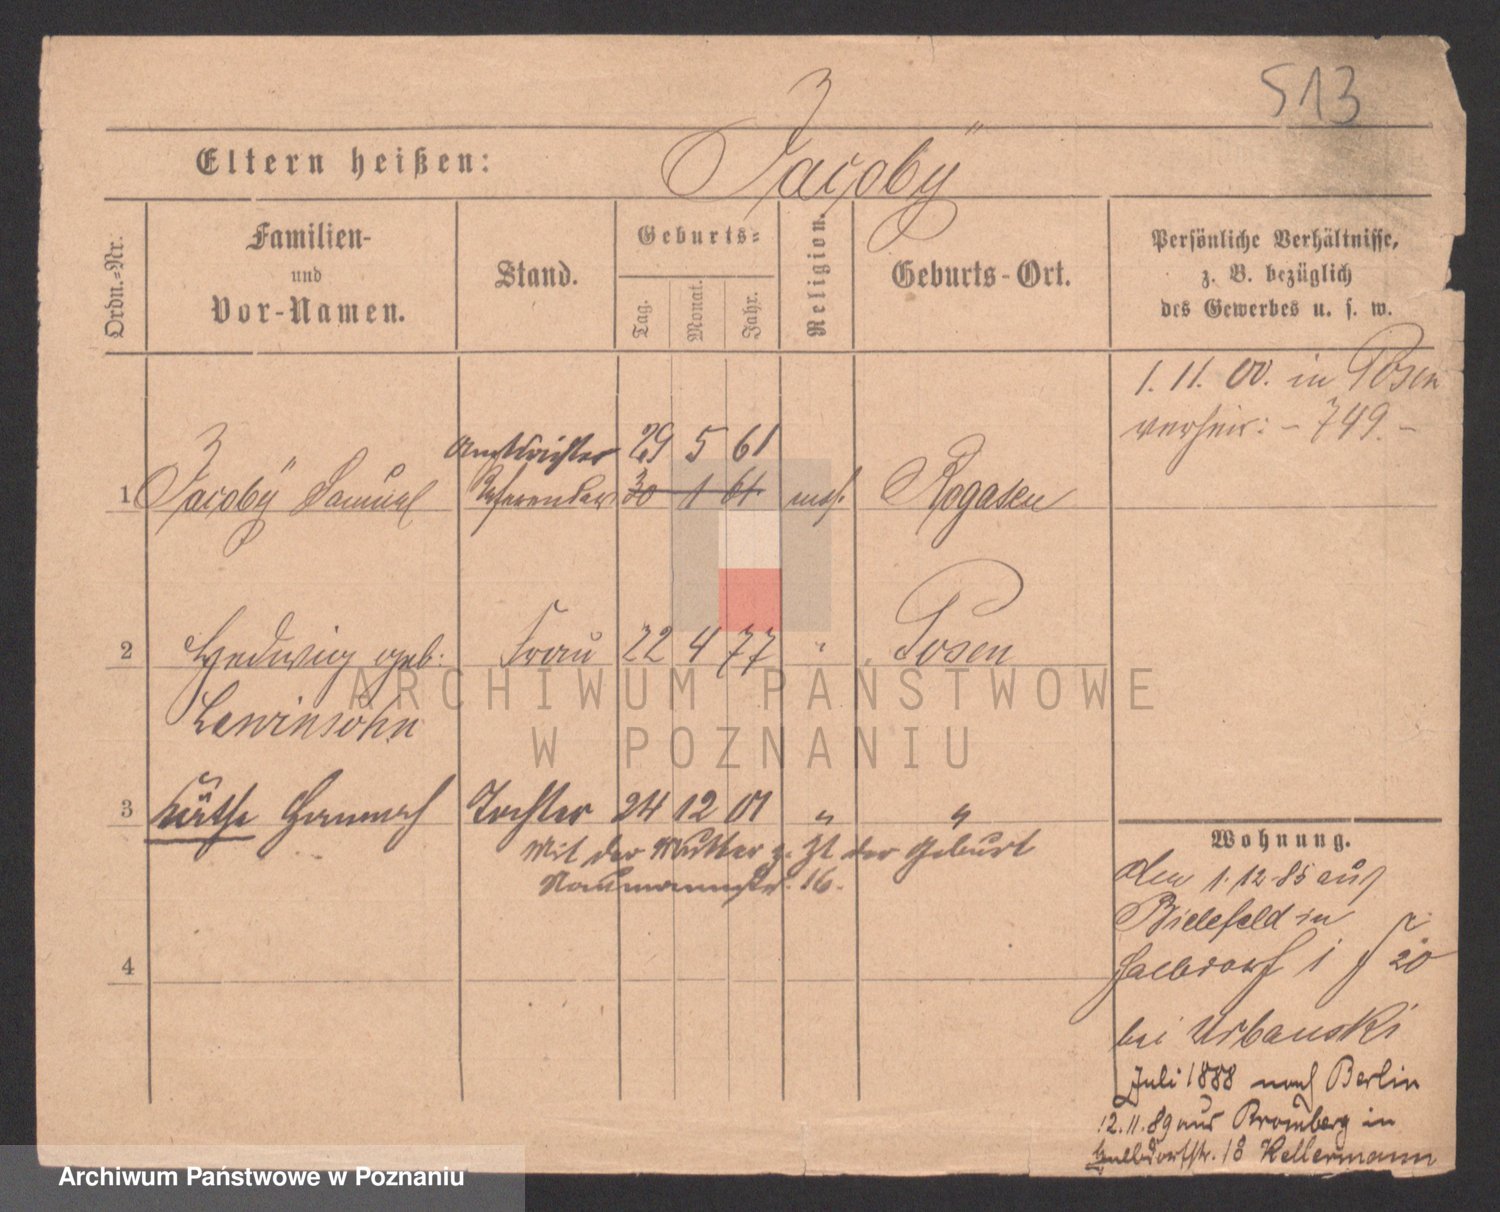 513
Eltern heißen: Jacoby
Ordn.-Nr.
Familien-
und
Vor-Namen.
Stand.
Geburts-
Tag.
Monat.
Jahr.
Religion.
Geburts-Ort.
Persönliche Verhältnisse,
z. B. bezüglich
des Gewerbes u. s. w.
1. 11. 00. in Posen
verheir: - 749. -
Amtsrichter 29 5 61
1 Jacoby Samuel Referendar 30 1 61 mos. Rogasen
2 Hedwig geb. Frau 22 4 77 " Posen
Lewinsohn
3 Käthe Hannah Tochter 24 12 01 " "
Mit der Mutter z. Zt. der Geburt
Naumannstr. 16.
4
Wohnung.
den 1.12.85 aus
Bielefeld in
Halbdorf
20
bei Urbanski
Juli 1888 nach Berlin
12.11.89 aus Bromberg in
Halbdorfstr. 18 Kellermann
ARCHIWUM PAŃSTWOWE
W POZNANIU
Archiwum Państwowe w Poznaniu